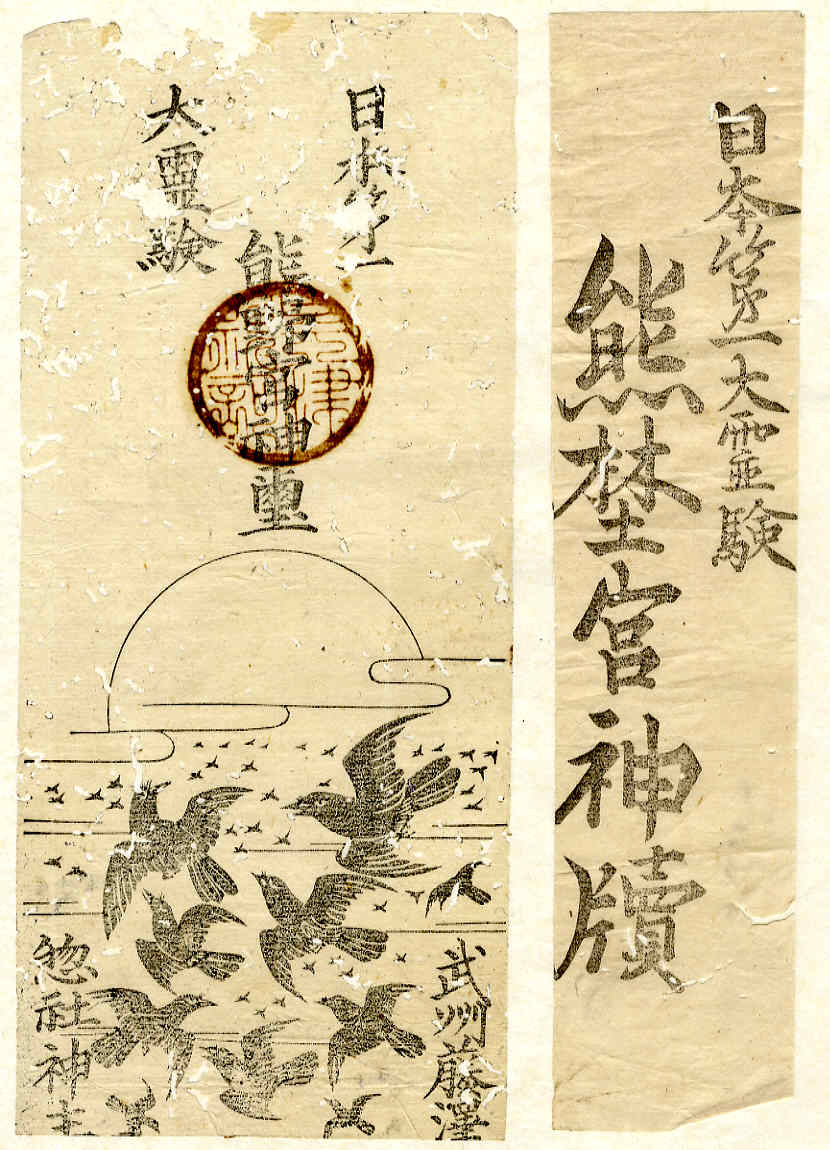 日本第一大霊験
熊埜宮神牘
日本第一
熊野宮神璽
大霊験
武州藤澤
惣社神主